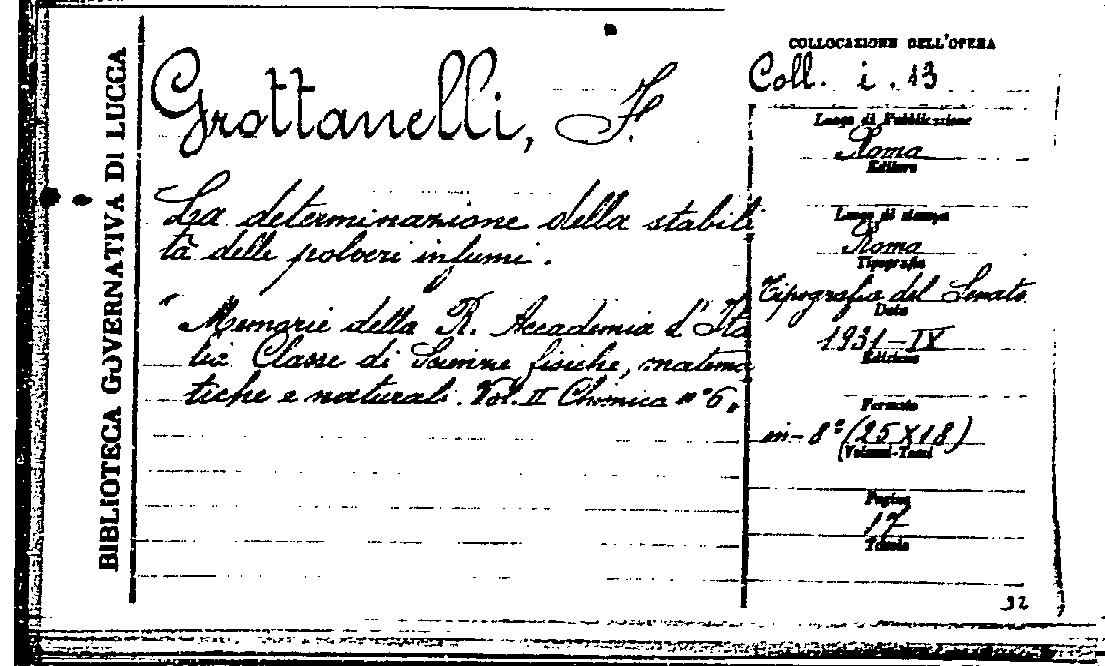 BIBLIOTECA GOVERNATIVA DI LUCCA
Grottanelli, F.
La determinazione della stabili
tà delle polveri infumi.
" Memorie della R. Accademia d'Ita
lia Classe di Scienze fisiche, matema
tiche e naturali. Vol. II Chimica n° 6 "
COLLOCAZIONE DELL'OPERA
Coll. i. 13
Luogo di Pubblicazione
Roma
Editore
Luogo di stampa
Roma
Tipografia
Tipografia del Senato
Data
1931-IX
Edizione
Formato
in-8° (25X18)
(Volumi-Tomi
Pagine
17
Tavole
32